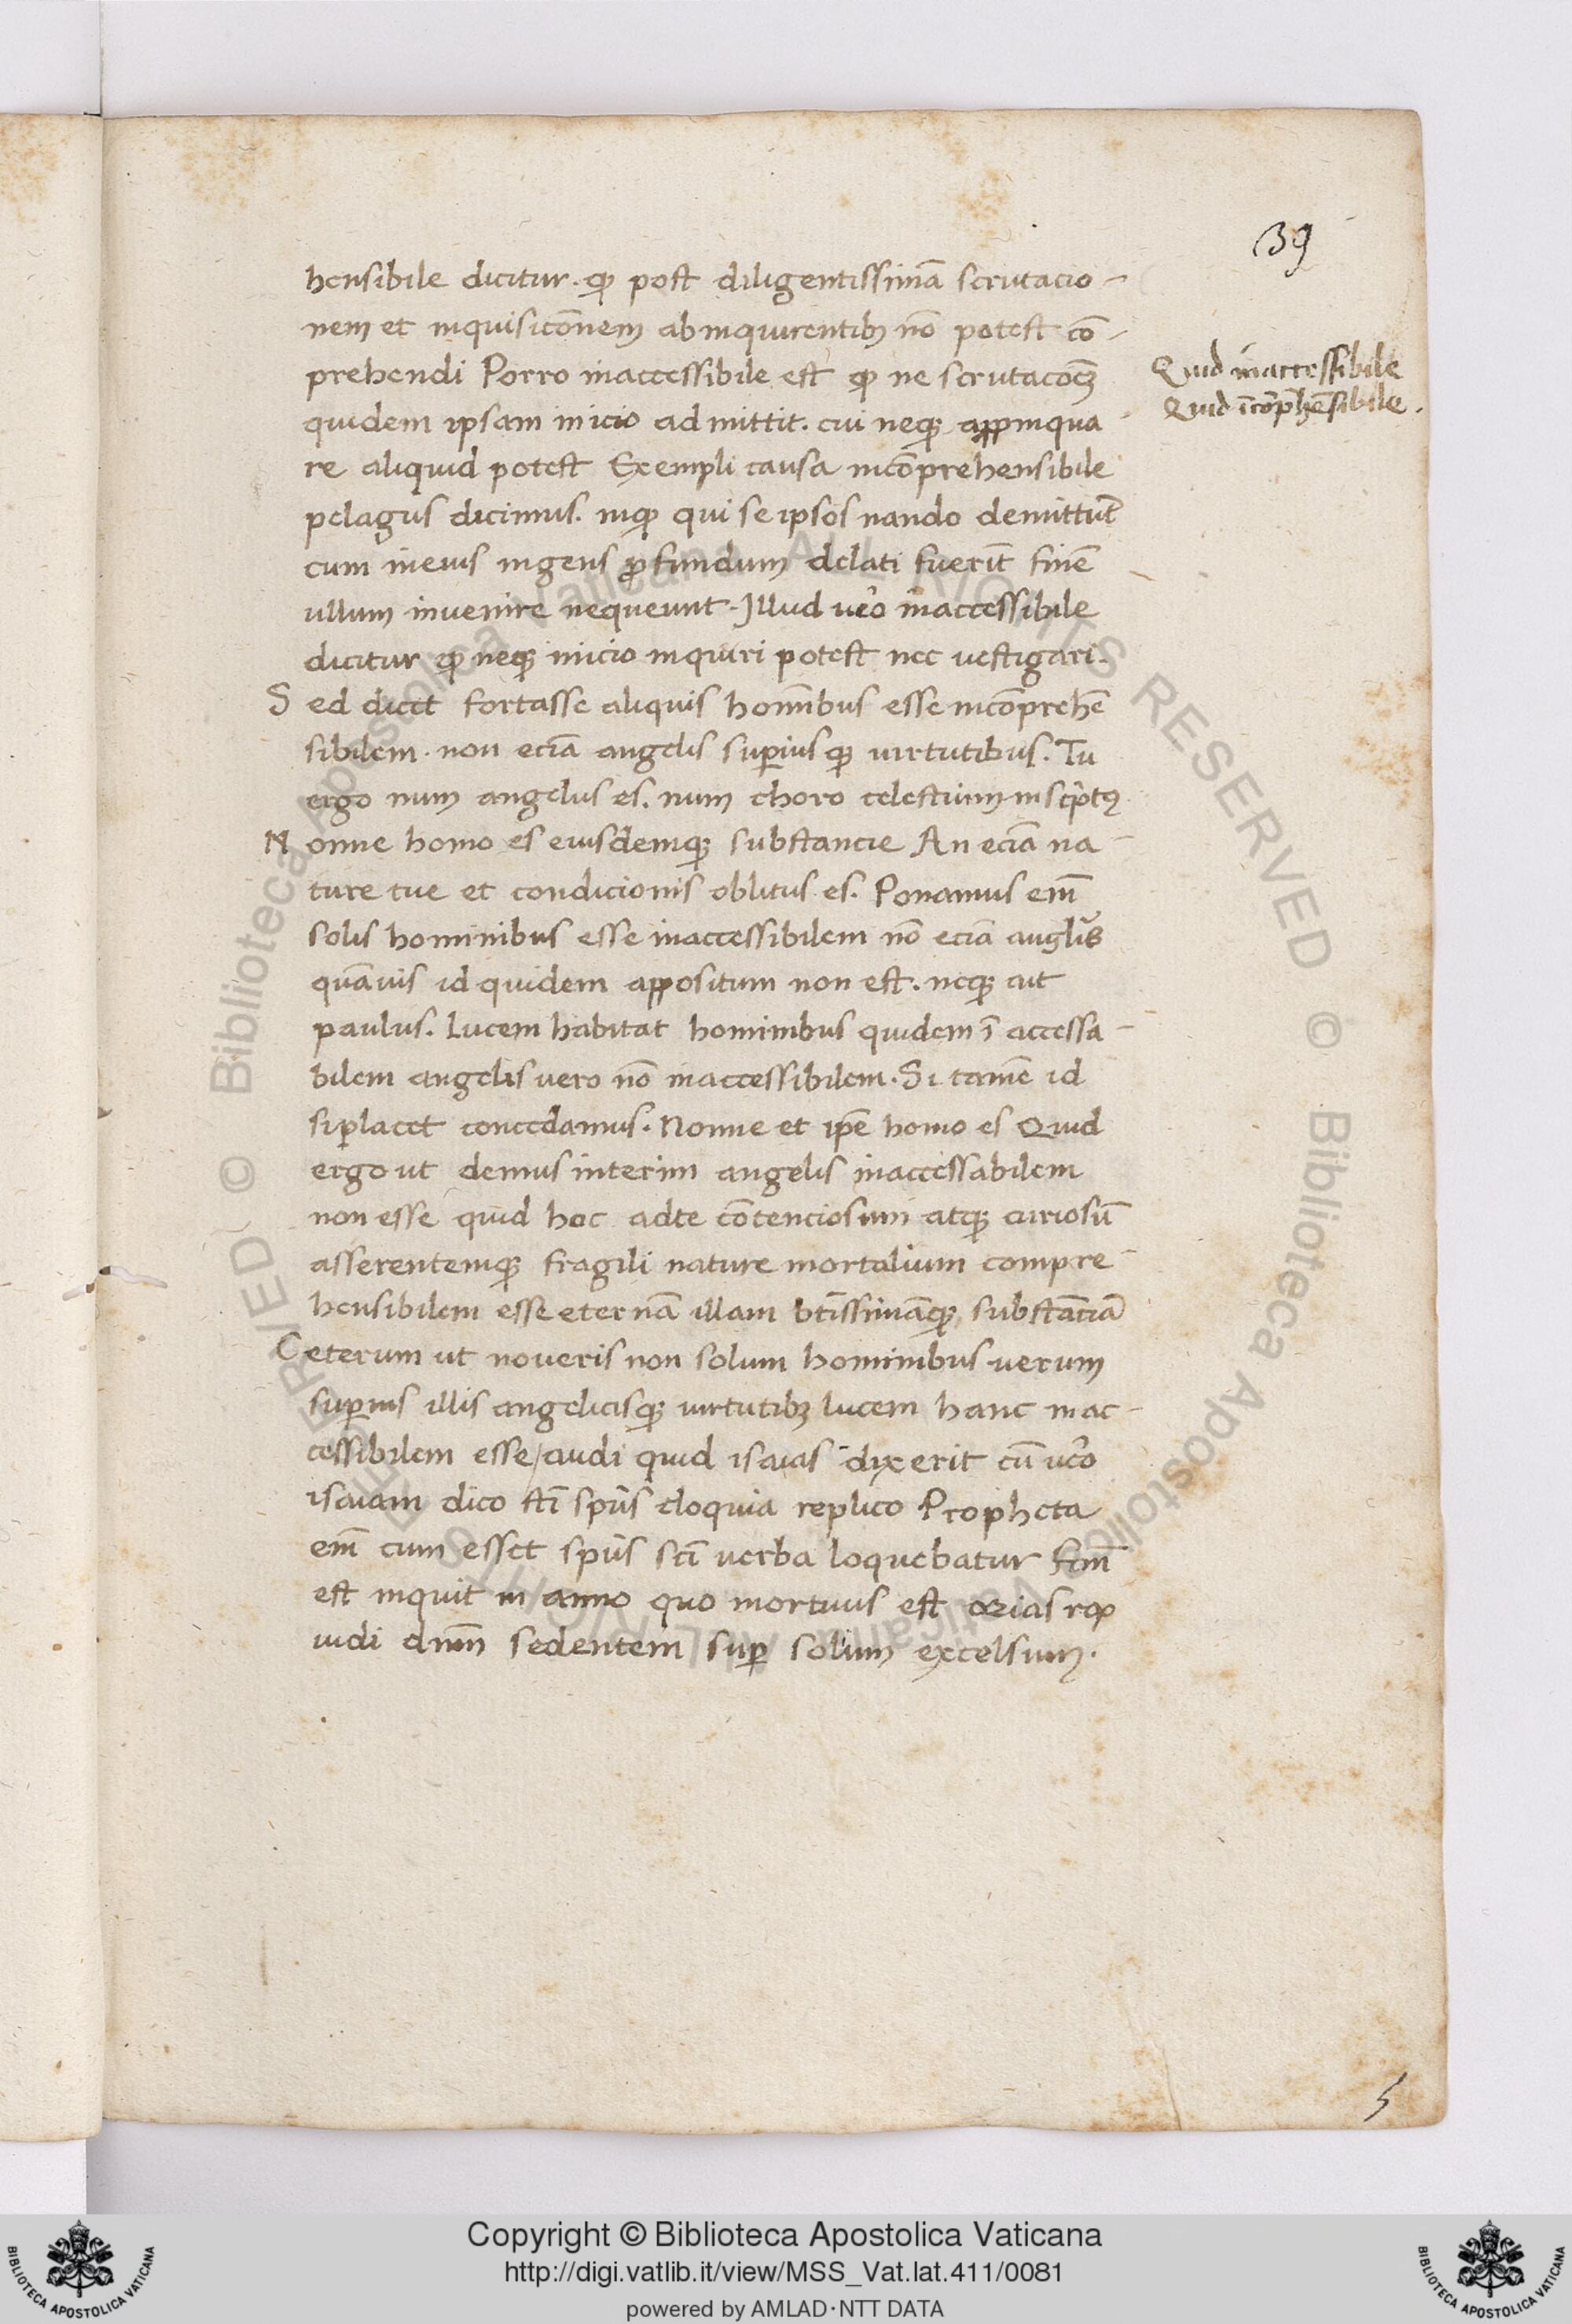 39
hensibile dicitur. qͦ post diligentissimā scrutacio-
nem et inquisicōnem ab inquirentibꝫ nō potest cō-
prehendi Porro inaccessibile est qͦ ne scrutacōeꝫ
quidem ipsam inicio admittit. cui neqꝫ apꝓinqua
re aliquid potest Exempli causa incōprehensibile
pelagus dicimus. inqͦ qui se ipsos nando demittūt
cum ineius ingens ꝓfundum delati fuerīt finē
ullum invenire nequeunt. Illud ūo inaccessibile
dicitur qͦ neqꝫ inicio inquiri potest nec vestigari.
Sed dicet fortasse aliquis hoīnibus esse incōprehē
sibilem. non eciā angelis suꝑiusqꝫ virtutibus. Tu
ergo num angelus es. num choro celestium inscp̄tꝰ
Nonne homo es eiusdemqꝫ substancie An eciā na-
ture tue et condicionis oblitus es. Ponamus em̄
solis hominibus esse inaccessibilem nō eciā angl̄is
quāuis id quidem appositum non est. neqꝫ ait
paulus. Lucem habitat hominibus quidem ī accessa-
bilem angelis vero nō inaccessibilem. Si tamē id
si placet concedamus. Nonne et ip̄e homo es Quid
ergo ut demus interim angelis inaccessabilem
non esse quid hoc adte cōtenciosum atqꝫ curiosū
asserentemqꝫ fragili nature mortalium compre-
hensibilem esse eternā illam btīssimāqꝫ substāciā
Ceterum ut noveris non solum hominibus verum
suꝑnis illis angelicisqꝫ virtutibꝫ lucem hanc inac-
cessibilem esse/audi quid isaias dixerit cū ūo
isaiam dico sc̄i sp̄us eloquia replico Propheta
em̄ cum esset sp̄us sc̄i verba loquebatur fcm̄
est inquit in anno quo mortuus est ozias
vidi dnm̄ sedentem suꝑ solium excelsum.
Quid inaccessibile
Quid īcōp̄hēsibile.
5
© Biblioteca Apostolica Vaticana ALL RIGHTS RESERVED © Biblioteca Apostolica Vaticana ALL RIGHTS RESERVED
Copyright © Biblioteca Apostolica Vaticana
http://digi.vatlib.it/view/MSS_Vat.lat.411/0081
powered by AMLAD·NTT DATA
BIBLIOTECA APOSTOLICA VATICANA
BIBLIOTECA APOSTOLICA VATICANA